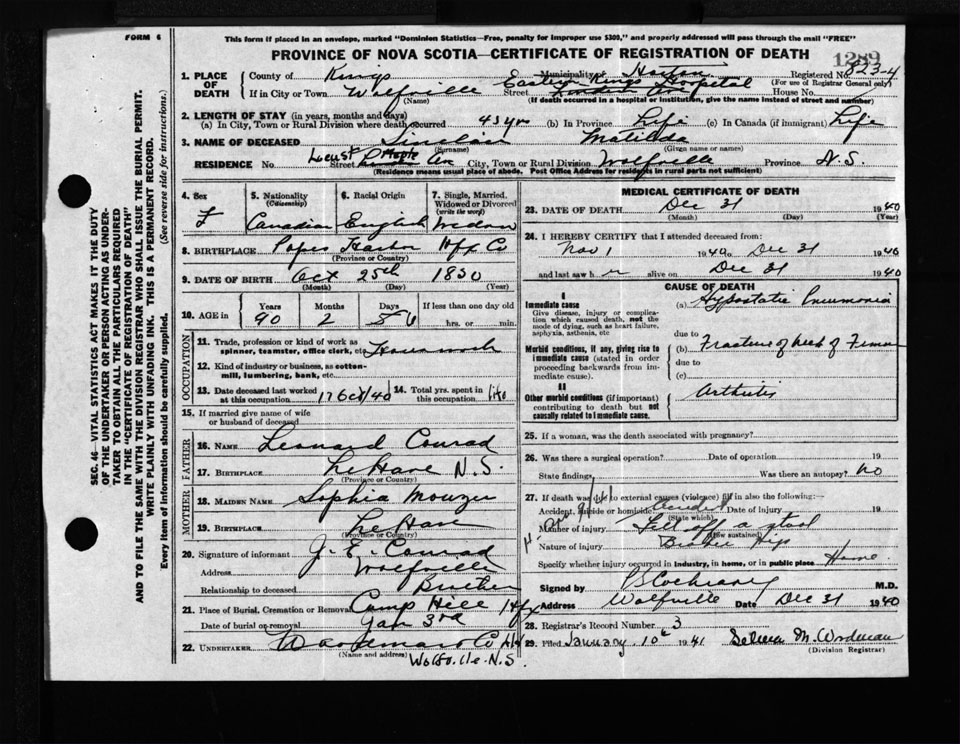 FORM 6
This form if placed in an envelope, marked "Dominion Statistics—Free, penalty for improper use $300," and properly addressed will pass through the mail "FREE"
PROVINCE OF NOVA SCOTIA—CERTIFICATE OF REGISTRATION OF DEATH
1289
1. PLACE OF DEATH
County of Kings Municipality of Horton Registered No. 823-4
(For use of Registrar General only)
If in City or Town Wolfville Street Eastern Kings Hospital House No.
(Name) (If death occurred in a hospital or institution, give the name instead of street and number)
2. LENGTH OF STAY (in years, months and days)
(a) In City, Town or Rural Division where death occurred 43 yrs (b) In Province Life (c) In Canada (if immigrant) Life
3. NAME OF DECEASED Sinclair Matilda
(Surname) (Given name or names)
RESIDENCE No. Street Locust Ave City, Town or Rural Division Wolfville Province N.S.
(Residence means usual place of abode. Post Office Address for residents in rural parts not sufficient)
4. Sex F
5. Nationality (Citizenship) Canadian
6. Racial Origin English
7. Single, Married, Widowed or Divorced (write the word) Widow
8. BIRTHPLACE Popes Harbor Hfx Co
(Province or Country)
9. DATE OF BIRTH Oct 25th 1850
(Month) (Day) (Year)
10. AGE in Years 90 Months 2 Days 6 If less than one day old hrs. or min.
OCCUPATION
11. Trade, profession or kind of work as spinner, teamster, office clerk, etc. Housework
12. Kind of industry or business, as cotton-mill, lumbering, bank, etc.
13. Date deceased last worked at this occupation 17 Oct/40 14. Total yrs. spent in this occupation life
15. If married give name of wife or husband of deceased
FATHER
16. NAME Leonard Conrad
17. BIRTHPLACE LeHave N.S.
(Province or Country)
MOTHER
18. MAIDEN NAME Sophia Mouzer
19. BIRTHPLACE LeHave
(Province or Country)
20. Signature of informant J. E. Conrad
Address Wolfville
Relationship to deceased Brother
21. Place of Burial, Cremation or Removal Camp Hill Hfx
Date of burial or removal Jan 3rd
22. UNDERTAKER Co
(Name and address) Wolfville N.S.
MEDICAL CERTIFICATE OF DEATH
23. DATE OF DEATH Dec 31 1940
(Month) (Day) (Year)
24. I HEREBY CERTIFY that I attended deceased from:
Nov 1 1940 Dec 31 1940
and last saw h er alive on Dec 31 1940
CAUSE OF DEATH
I
Immediate cause
Give disease, injury or complication which caused death, not the mode of dying, such as heart failure, asphyxia, asthenia, etc
(a) Hypostatic Pneumonia
due to
Morbid conditions, if any, giving rise to immediate cause (stated in order proceeding backwards from immediate cause).
(b) Fracture of neck of Femur
due to
(c)
II
Other morbid conditions (if important) contributing to death but not causally related to immediate cause.
Arthritis
25. If a woman, was the death associated with pregnancy?
26. Was there a surgical operation? Date of operation 19
State findings Was there an autopsy? No
27. If death was due to external causes (violence) fill in also the following:—
Accident, suicide or homicide Accident Date of injury 19
(State which)
Manner of injury Fell off a stool
(How sustained)
Nature of injury Broken Hip
Specify whether injury occurred in industry, in home, or in public place Home
Signed by Cochrane M.D.
Address Wolfville Date Dec 31 1940
28. Registrar's Record Number 3
29. Filed January 10th 1941 M. Woodman
(Division Registrar)
SEC. 46—VITAL STATISTICS ACT MAKES IT THE DUTY
OF THE UNDERTAKER OR PERSON ACTING AS UNDER-
TAKER TO OBTAIN ALL THE PARTICULARS REQUIRED
IN THE "CERTIFICATE OF REGISTRATION OF DEATH"
AND TO FILE THE SAME WITH THE DIVISION REGISTRAR WHO SHALL ISSUE THE BURIAL PERMIT.
WRITE PLAINLY WITH UNFADING INK. THIS IS A PERMANENT RECORD.
Every item of information should be carefully supplied. (See reverse side for instructions.)